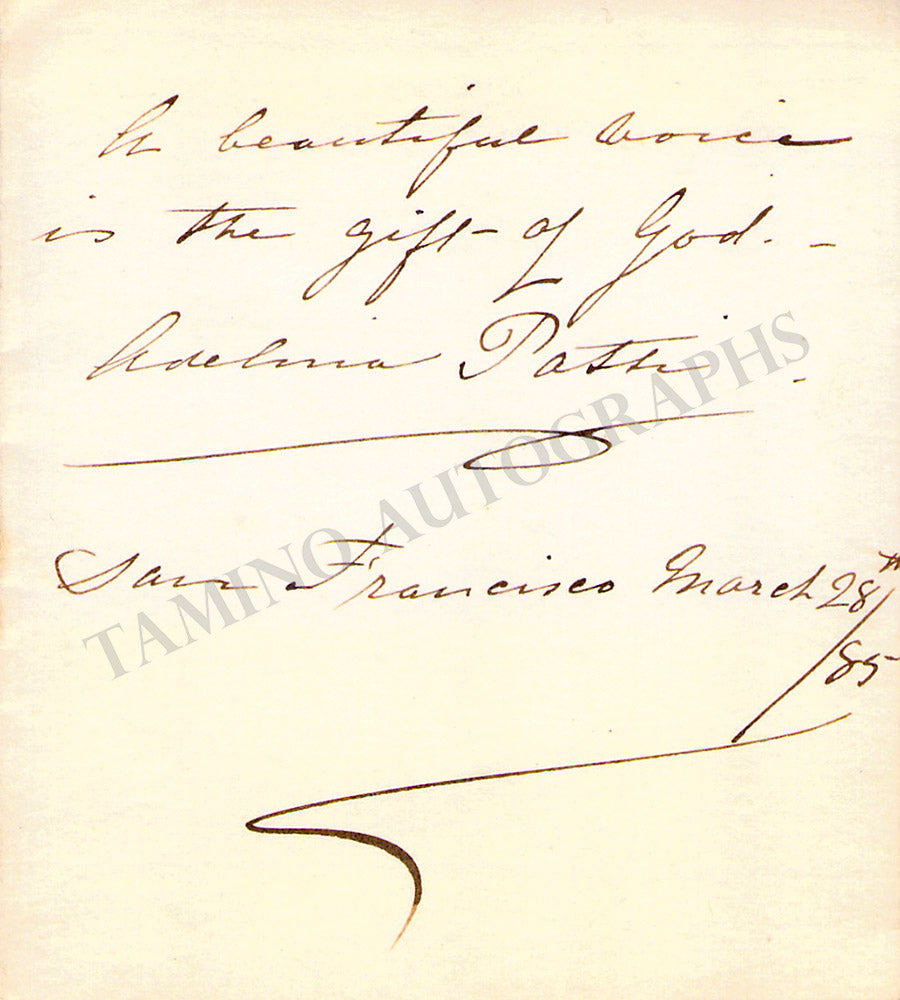 A beautiful voice
is the gift of God. -
Adelina Patti.
TAMINO AUTOGRAPHS
San Francisco March 28th
/85